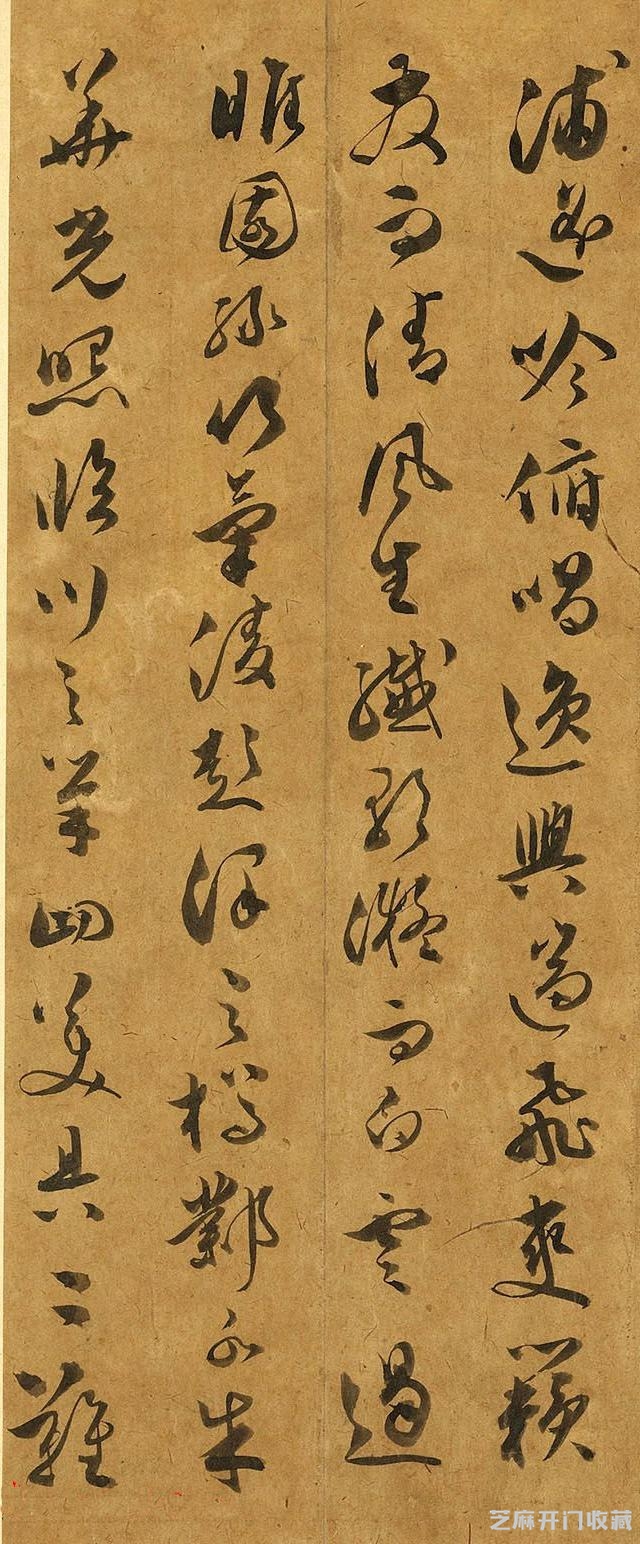 浦遥吟俯唱逸興遄飛爽籟
發而清風生纖歌凝而白雲遏
睢園緑竹氣淩彭澤之樽鄴水朱
華光照臨川之筆四美具二難
芝麻开门收藏